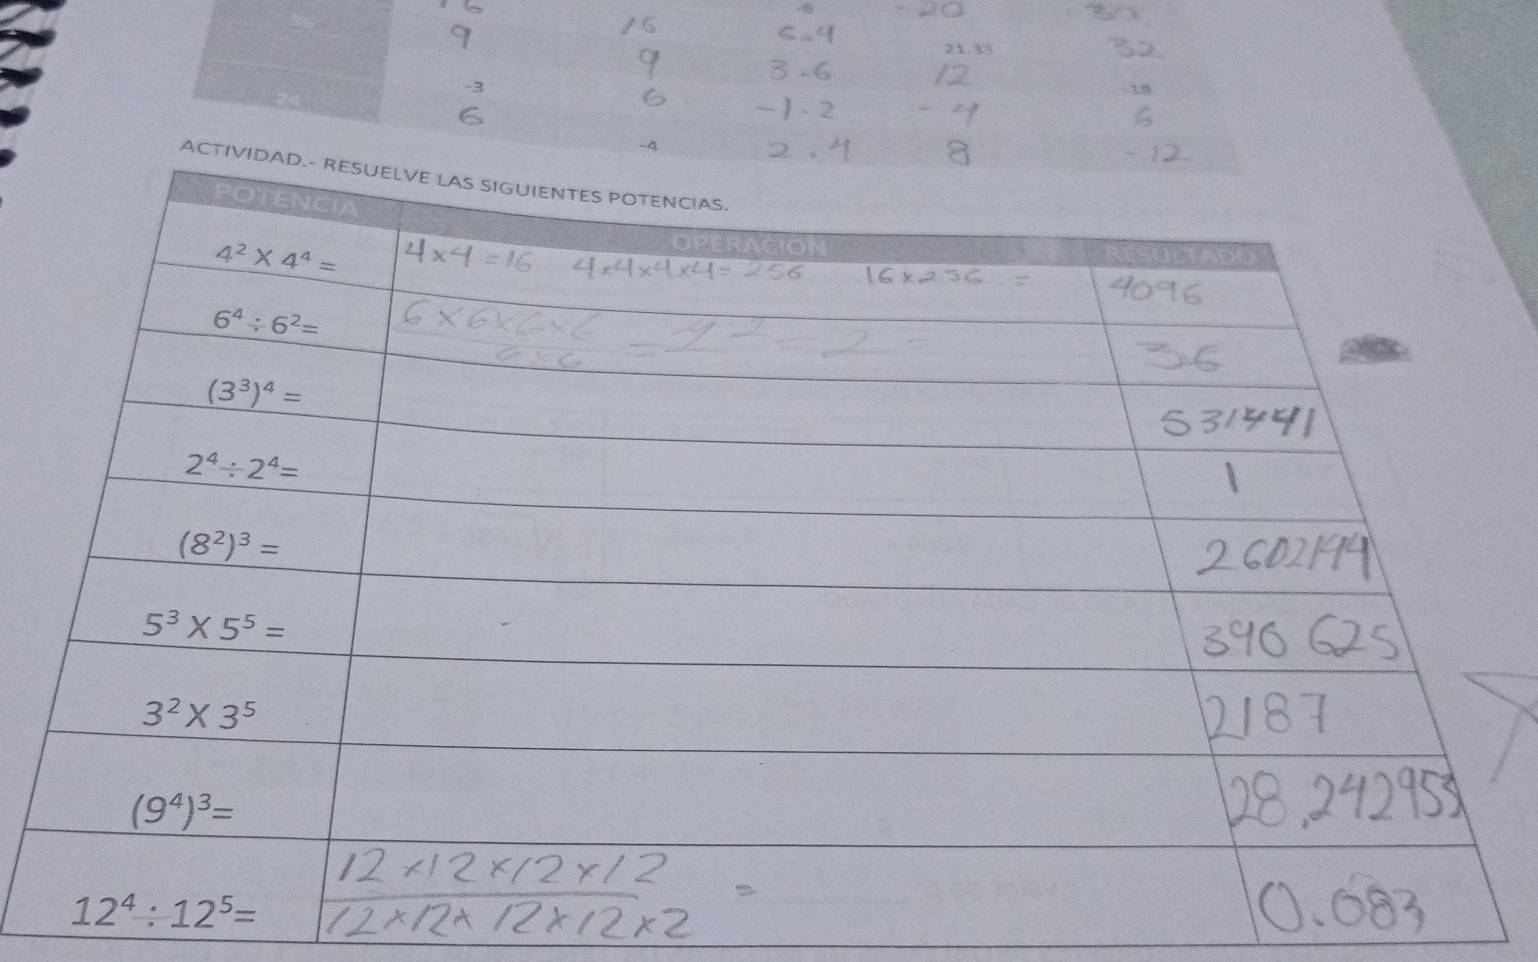 16 -6 -20 30
9 16 6.4 21.33 32
9 3.6 12
-3 6 -1.2 -4 -18
6 6
-4 2.4 8 -12
24
ACTIVIDAD.- RESUELVE LAS SIGUIENTES POTENCIAS.
POTENCIA OPERACIÓN RESULTADO
4² X 4⁴ = 4×4=16 4×4×4×4=256 16×256 = 4096
6⁴ ÷ 6²= 6×6×6×6 / 6×6 = 36
(3³)⁴ = 531441
2⁴ ÷ 2⁴= 1
(8²)³ = 2602144
5³ X 5⁵ = 390 625
3² X 3⁵ 2187
(9⁴)³= 28.242953
12⁴ ÷ 12⁵= 12×12×12×12 / 12×12×12×12×2 = 0.083